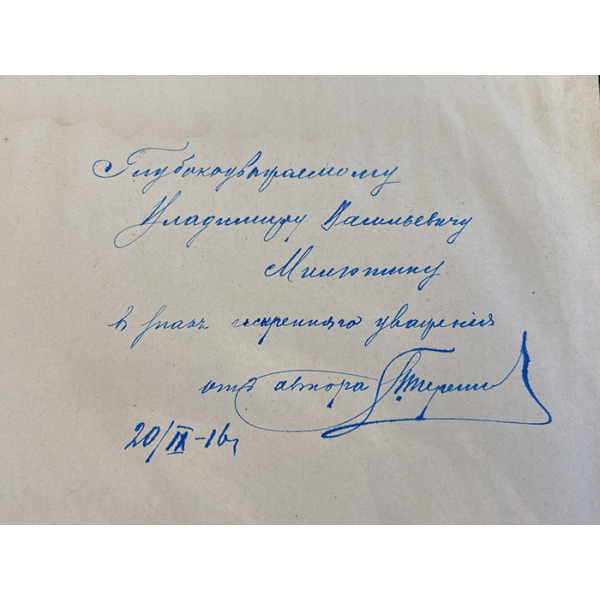 Глубокоуважаемому
Владимиру Васильевичу
Милютину
в знакъ искренняго уваженія
отъ автора
20/IX-16 г.